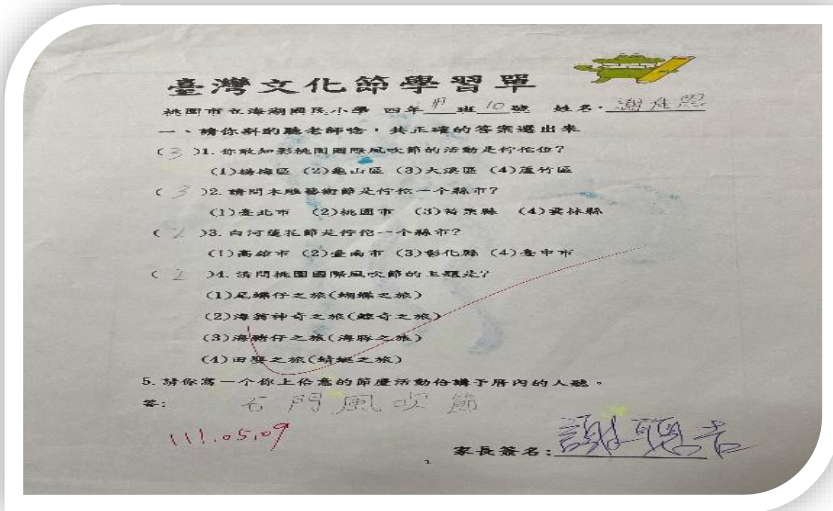 臺灣文化節學習單
桃園市立海湖國民小學 四年 甲 班 10 號 姓名:謝
一、請你斟酌聽老師唸,共正確的答案選出來
( 3 )1. 你敢知影桃園國際風吹節的活動是佇佗位?
(1)楊梅區 (2)龜山區 (3)大溪區 (4)蘆竹區
( 3 )2. 請問木雕藝術節是佇佗一个縣市?
(1)臺北市 (2)桃園市 (3)苗栗縣 (4)雲林縣
( 2 )3. 白河蓮花節是佇佗一个縣市?
(1)高雄市 (2)臺南市 (3)彰化縣 (4)臺中市
( 2 )4. 請問桃園國際風吹節的主題是?
(1)尾蝶仔之旅(蝴蝶之旅)
(2)海翁神奇之旅(鯨奇之旅)
(3)海豬仔之旅(海豚之旅)
(4)田嬰之旅(蜻蜓之旅)
5. 請你寫一个你上佮意的節慶活動佮講予厝內的人聽。
答: 石門風吹節
111.05.09
家長簽名:謝聰吉
1